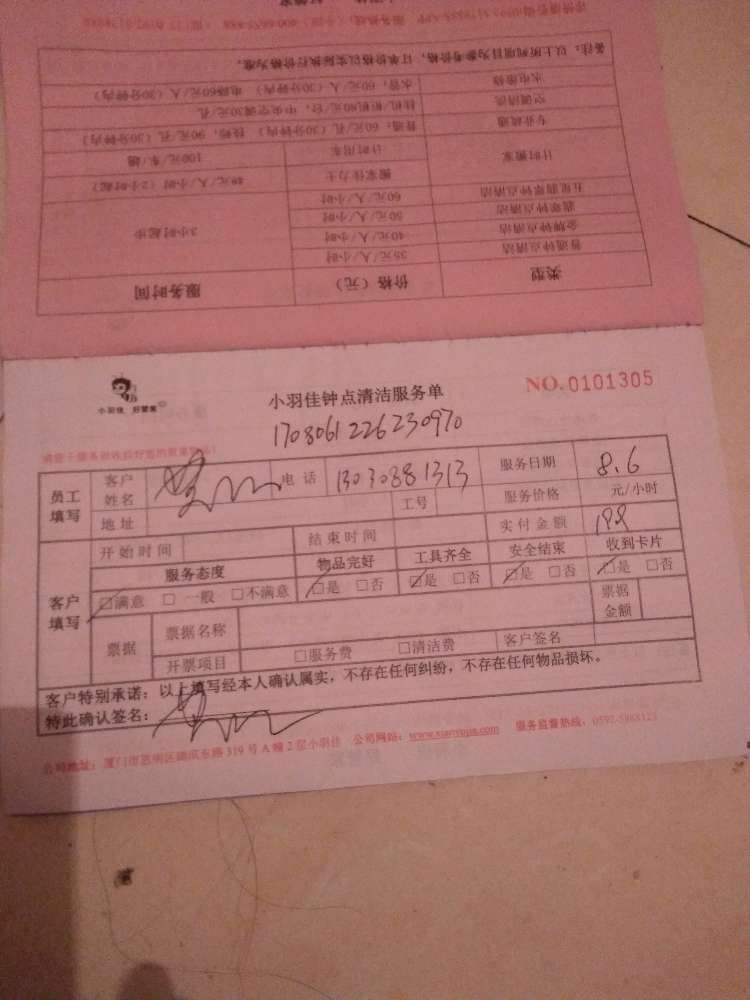 备注：以上所列项目为参考价格，订单价格以实际执行价格为准。
水电维修 水管：60元/人（30分钟内） 电路60元/人（30分钟内）
空调清洗 挂机/柜机80元/台，中央空调30元/孔
专业疏通 普通：60元/孔（30分钟内） 特殊：90元/孔（30分钟内）
计时搬家 计时用车 100元/车/趟
搬家佳力士 48元/人/小时（2小时起）
五星钟点清洁 60元/人/小时
翡翠钟点清洁 50元/人/小时
金牌钟点清洁 40元/人/小时 3小时起步
普通钟点清洁 35元/人/小时
类型 价格（元） 服务时间
小羽佳 好管家
小羽佳钟点清洁服务单
NO.0101305
1708061226230970
员工填写 客户姓名 电话 13030881313 服务日期 8.6
地址 工号 服务价格 元/小时
客户填写 开始时间 结束时间 实付金额
服务态度 物品完好 工具齐全 安全结束 收到卡片
☑满意 □一般 □不满意 ☑是 □否 ☑是 □否 ☑是 □否 ☑是 □否
票据 票据名称 票据金额
开票项目 □服务费 □清洁费 客户签名
客户特别承诺：以上填写经本人确认属实，不存在任何纠纷，不存在任何物品损坏。
特此确认签名：
公司地址：厦门市思明区湖滨东路319号A幢2层小羽佳 公司网站：www.xiaoyujia.com 服务监督热线：0592-5888123